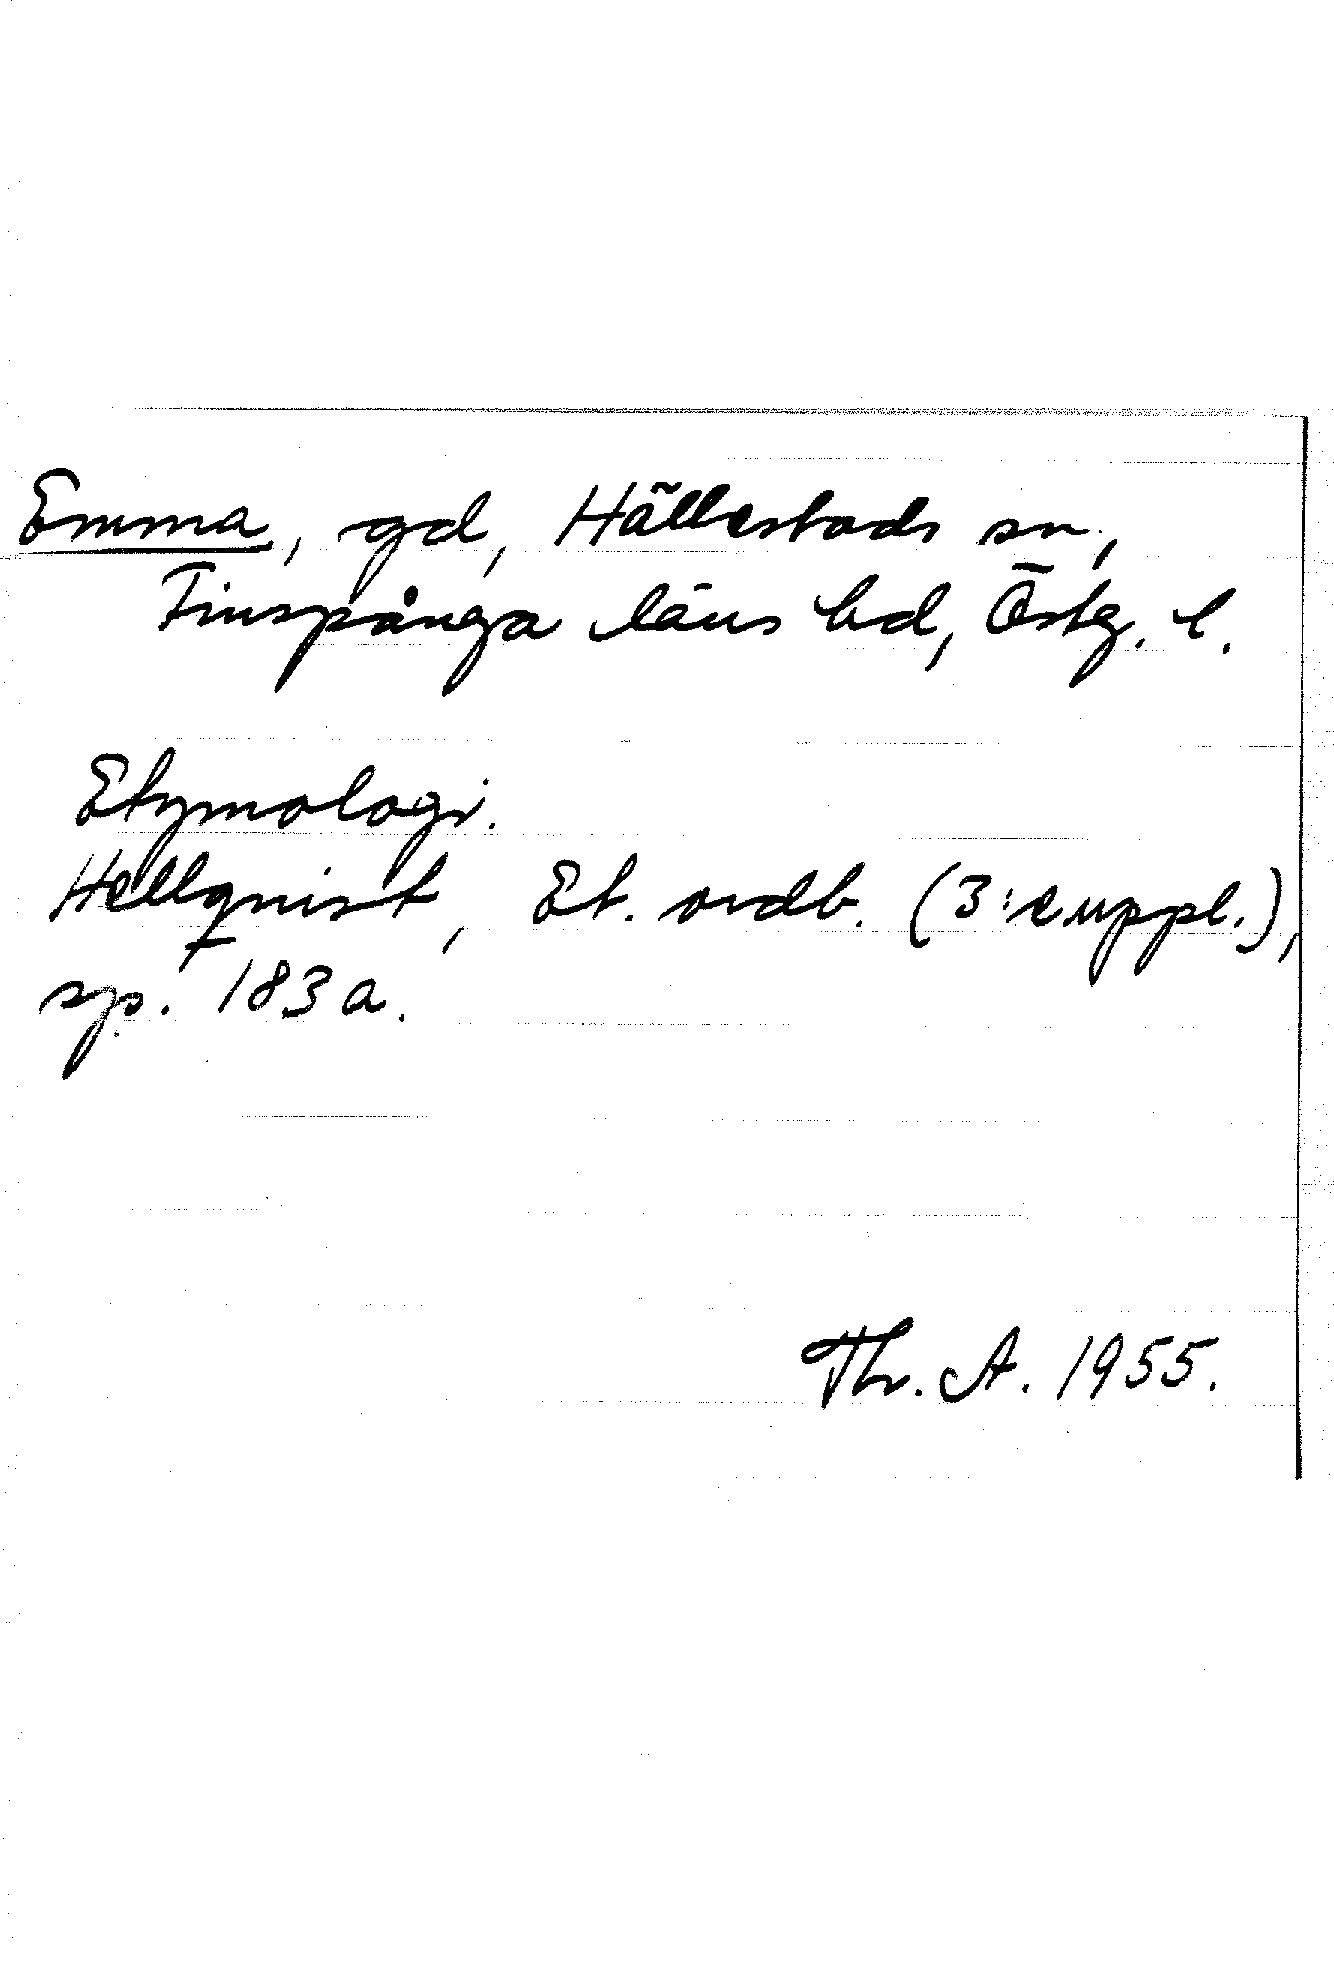 Emma, gd, Hällestads sn,
Finspånga läns hd, Östg. l.
Etymologi.
Hellquist, Et. ordb. (3:e uppl.),
sp. 183 a.
Thr. A. 1955.